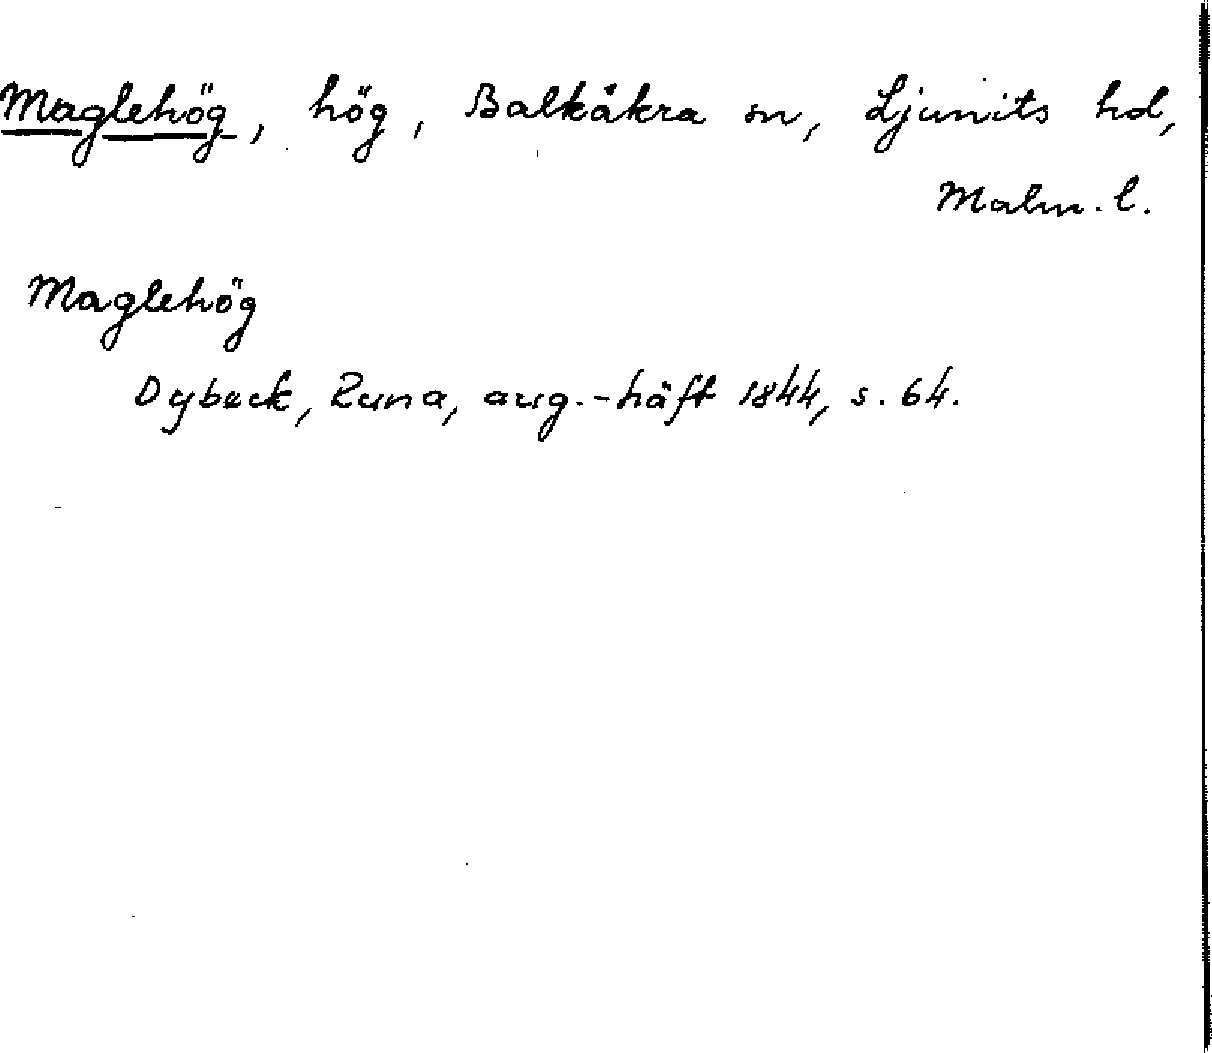 Maglehög, hög, Balkåkra sn, Ljunits hd,
Malm. l.
Maglehög
Dybeck, Runa, aug.-häft 1844, s. 64.